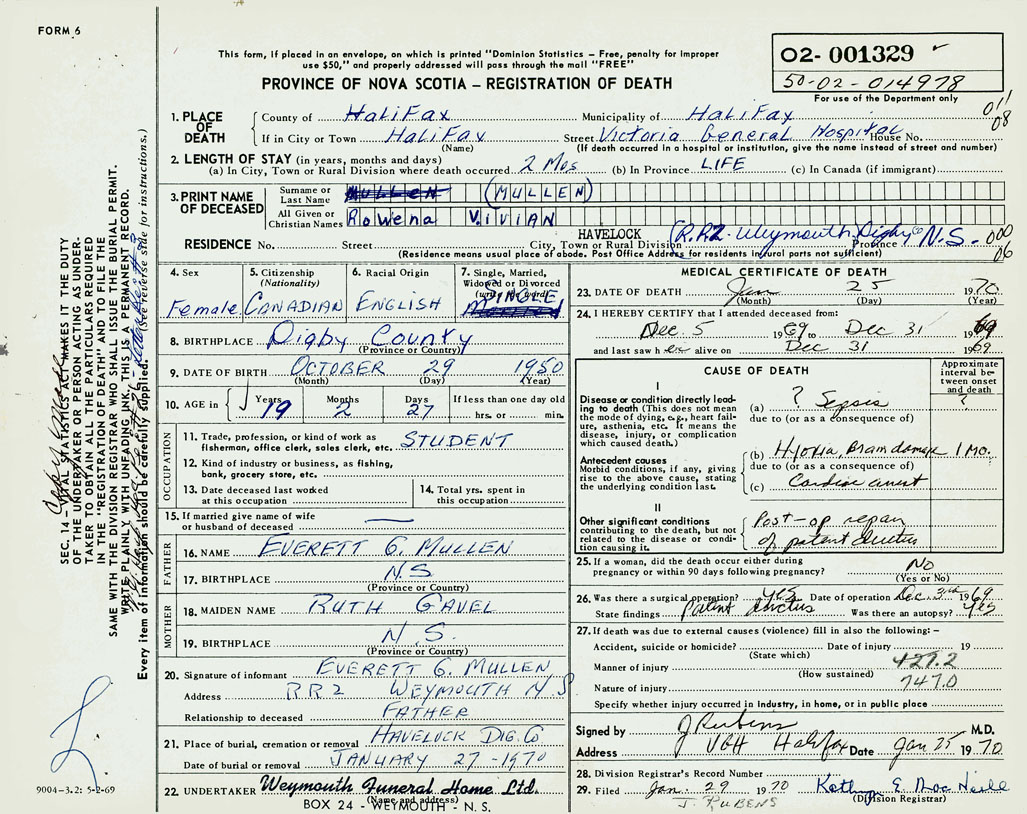 FORM 6
This form, if placed in an envelope, on which is printed "Dominion Statistics – Free, penalty for improper
use $50," and properly addressed will pass through the mail "FREE"
PROVINCE OF NOVA SCOTIA – REGISTRATION OF DEATH
02- 001329
50-02-014978
For use of the Department only
011
08
1. PLACE OF DEATH
County of HaliFax Municipality of HaliFax
If in City or Town HaliFax Street Victoria General Hospital House No.
(Name) (If death occurred in a hospital or institution, give the name instead of street and number)
2. LENGTH OF STAY (in years, months and days)
(a) In City, Town or Rural Division where death occurred 2 Mos (b) In Province LIFE (c) In Canada (if immigrant)
3. PRINT NAME OF DECEASED
Surname or Last Name MULLEN (MULLEN)
All Given or Christian Names Rowena VIVIAN
HAVELOCK
RESIDENCE No. Street City, Town or Rural Division (R.R.2. Weymouth, Digby Co Province N.S. 000
06
(Residence means usual place of abode. Post Office Address for residents in rural parts not sufficient)
4. Sex Female
5. Citizenship (Nationality) CANADIAN
6. Racial Origin ENGLISH
7. Single, Married, Widowed or Divorced (write the word) SINGLE
8. BIRTHPLACE Digby County
(Province or County)
9. DATE OF BIRTH OCTOBER 29 1950
(Month) (Day) (Year)
10. AGE in Years 19 Months 2 Days 27 If less than one day old hrs. or min.
OCCUPATION
11. Trade, profession, or kind of work as fisherman, office clerk, sales clerk, etc. STUDENT
12. Kind of industry or business, as fishing, bank, grocery store, etc.
13. Date deceased last worked at this occupation
14. Total yrs. spent in this occupation
15. If married give name of wife or husband of deceased —
FATHER
16. NAME EVERETT G. MULLEN
17. BIRTHPLACE N.S.
(Province or Country)
MOTHER
18. MAIDEN NAME RUTH GAVEL
19. BIRTHPLACE N.S.
(Province or Country)
20. Signature of informant EVERETT G. MULLEN
Address RR2 WEYMOUTH N.S.
Relationship to deceased FATHER
21. Place of burial, cremation or removal HAVELOCK DIG. CO
Date of burial or removal JANUARY 27-1970
22. UNDERTAKER Weymouth Funeral Home Ltd.
(Name and address)
BOX 24 – WEYMOUTH – N.S.
MEDICAL CERTIFICATE OF DEATH
23. DATE OF DEATH Jan 25 1970
(Month) (Day) (Year)
24. I HEREBY CERTIFY that I attended deceased from:
Dec. 5 1969 to Dec 31 1969
and last saw her alive on Dec 31 1969
CAUSE OF DEATH
Approximate interval between onset and death
I
Disease or condition directly leading to death (This does not mean the mode of dying, e.g., heart failure, asthenia, etc. It means the disease, injury, or complication which caused death.)
(a) ? Sepsis ?
due to (or as a consequence of)
Antecedent causes
Morbid conditions, if any, giving rise to the above cause, stating the underlying condition last.
(b) Hypoxia, Brain damage 1 Mo.
due to (or as a consequence of)
(c) Cardiac arrest
II
Other significant conditions contributing to the death, but not related to the disease or condition causing it.
Post-op repair
of patent ductus
25. If a woman, did the death occur either during pregnancy or within 90 days following pregnancy? No
(Yes or No)
26. Was there a surgical operation? yes Date of operation Dec. 3rd 1969
State findings Patent ductus Was there an autopsy? yes
27. If death was due to external causes (violence) fill in also the following: –
Accident, suicide or homicide? Date of injury 19
(State which)
Manner of injury 429.2
(How sustained)
Nature of injury 747.0
Specify whether injury occurred in industry, in home, or in public place
Signed by J Rubens M.D.
Address VGH Halifax Date Jan 25 1970
28. Division Registrar's Record Number
29. Filed Jan. 29 1970 Kathryn E. MacNeill
J. RUBENS (Division Registrar)
SEC. 14 – VITAL STATISTICS ACT MAKES IT THE DUTY
OF THE UNDERTAKER OR PERSON ACTING AS UNDER-
TAKER TO OBTAIN ALL THE PARTICULARS REQUIRED
IN THE "REGISTRATION OF DEATH" AND TO FILE THE
SAME WITH THE DIVISION REGISTRAR WHO SHALL ISSUE THE BURIAL PERMIT.
WRITE PLAINLY WITH UNFADING INK. THIS IS A PERMANENT RECORD.
Every item of information should be carefully supplied. (See reverse side for instructions.)
9004-3.2: 5-2-69